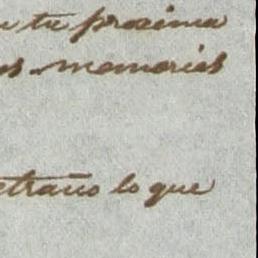 tu proxima
memorias
etraño lo que